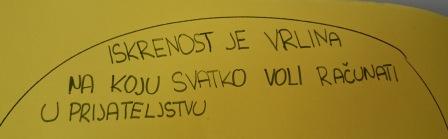 ISKRENOST JE VRLINA
NA KOJU SVATKO VOLI RAČUNATI
U PRIJATELJSTVU